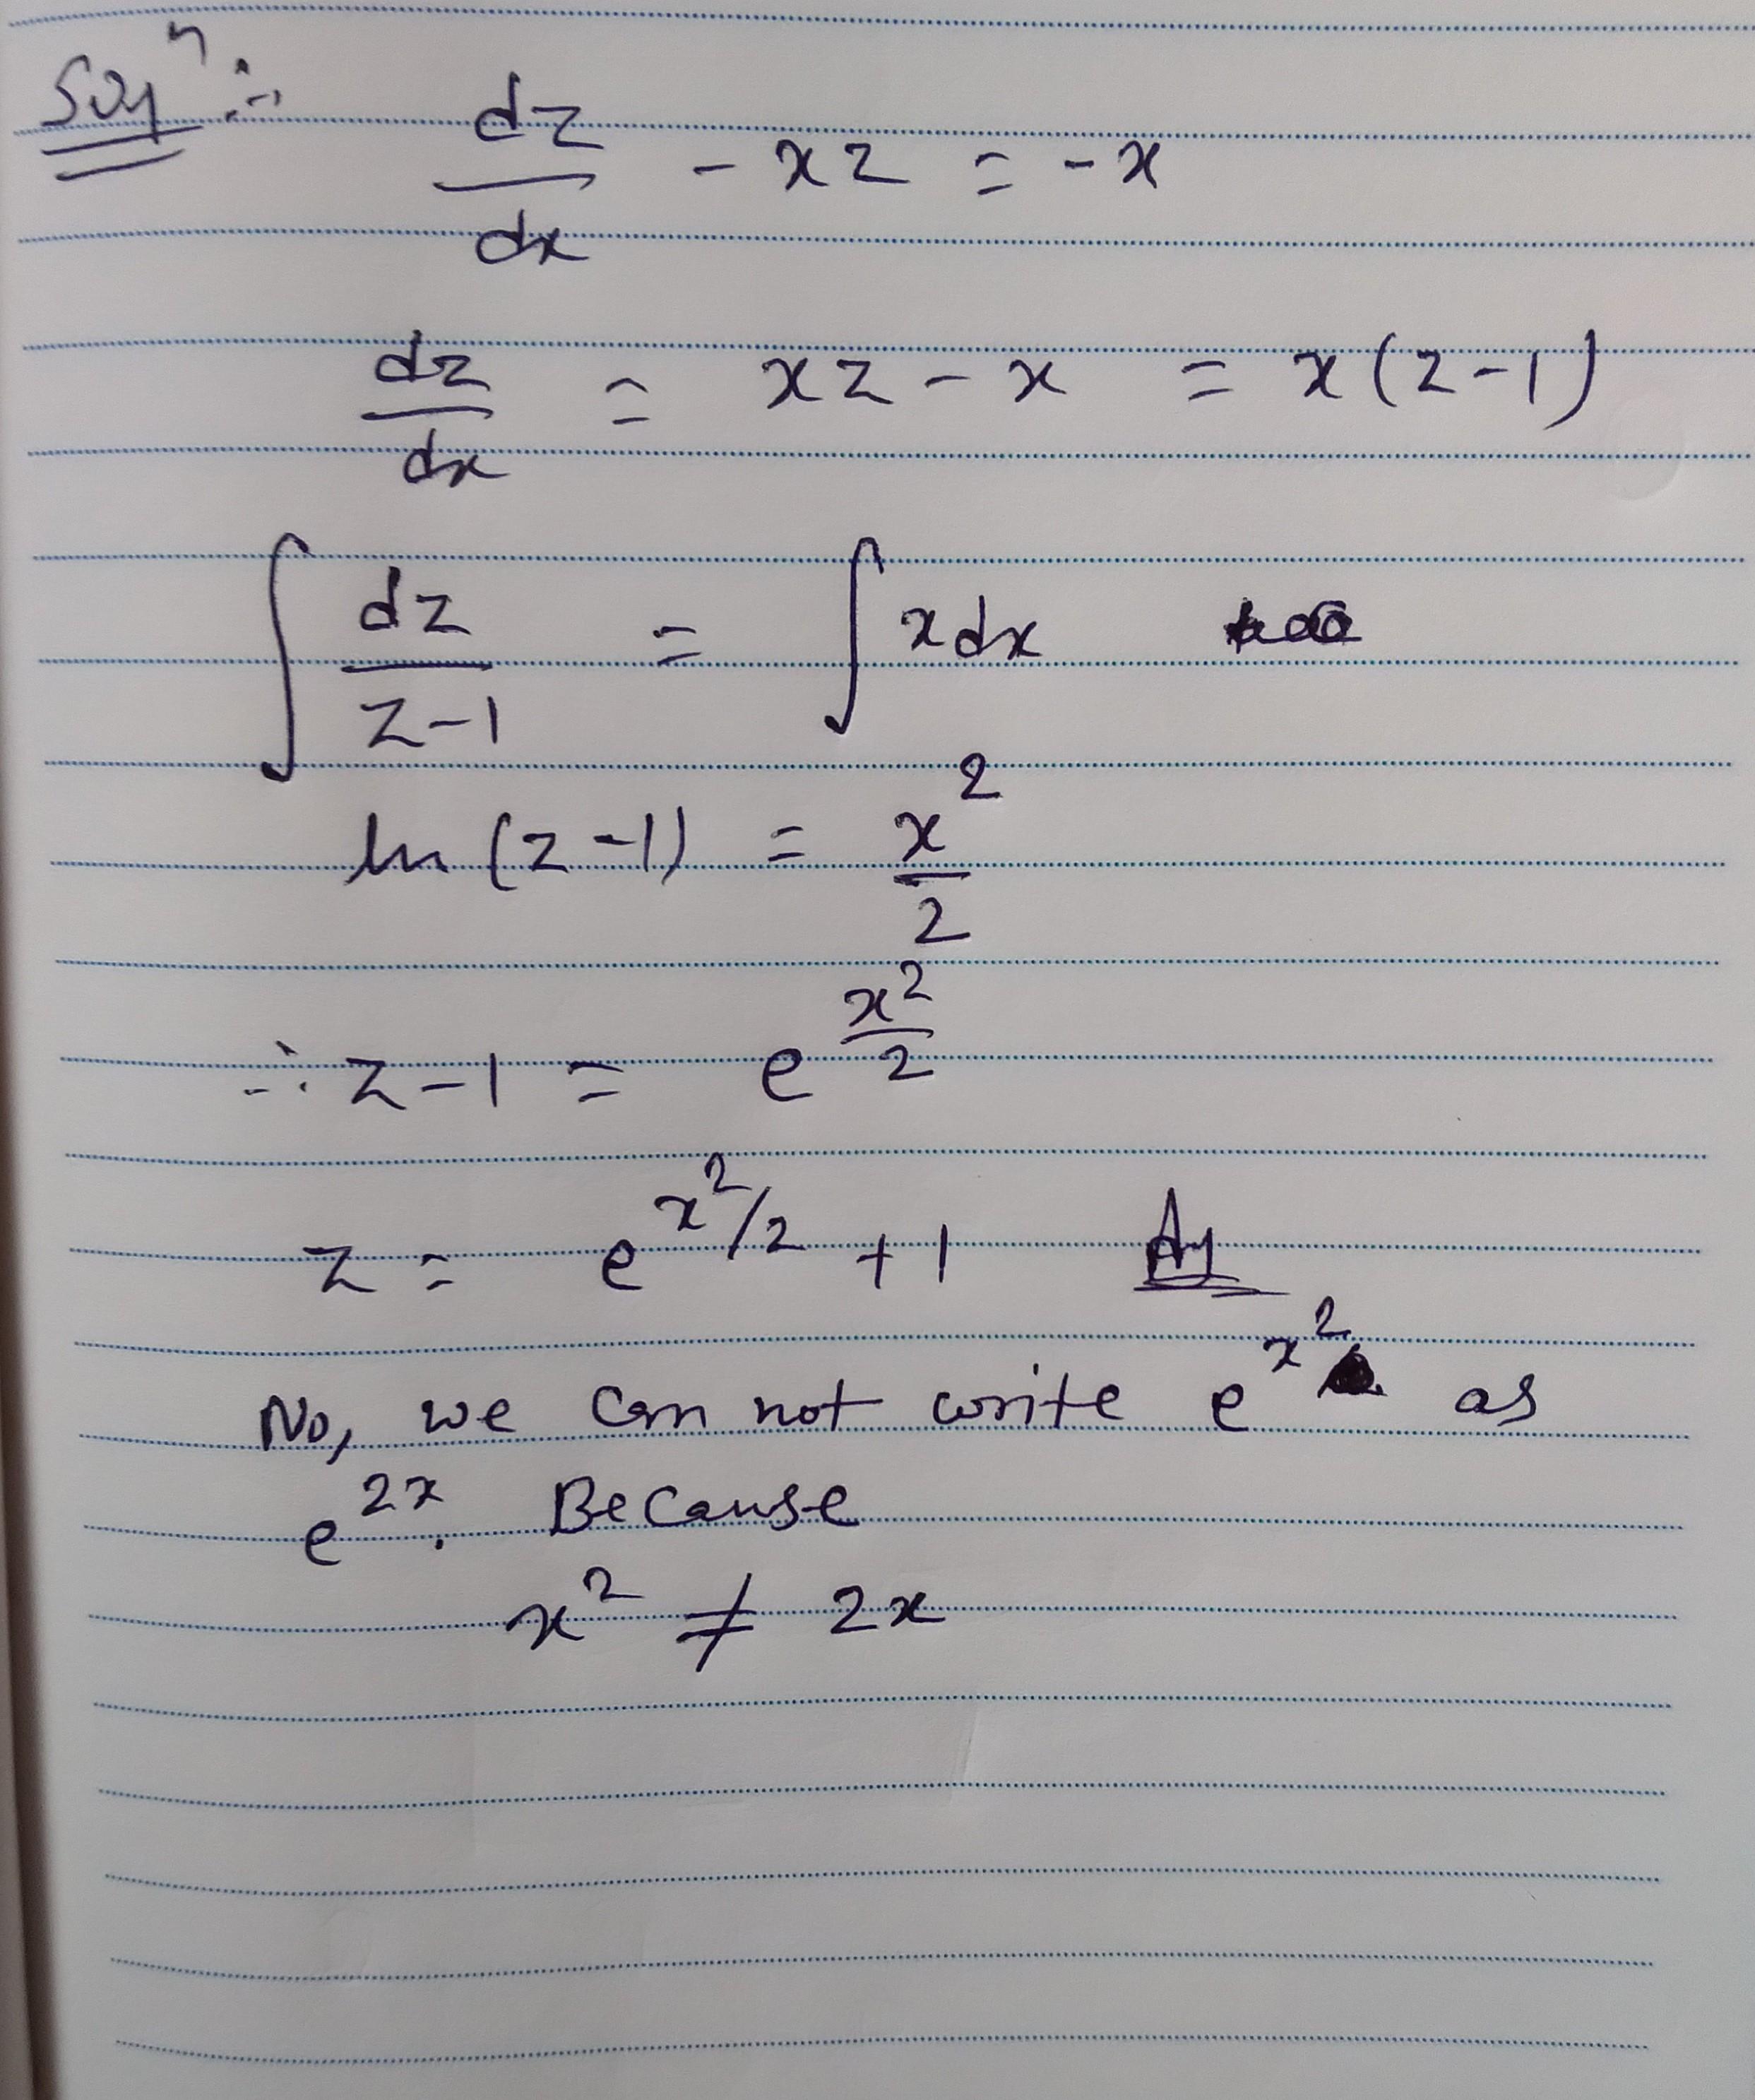 Solⁿ :- dz/dx - xz = -x
dz/dx = xz - x = x(z-1)
∫ dz/z-1 = ∫ x dx
ln (z-1) = x²/2
∴ z-1 = e^(x²/2)
z = e^(x²/2) + 1 Ans
No, we can not write e^(x²) as
e^(2x). Because
x² ≠ 2x